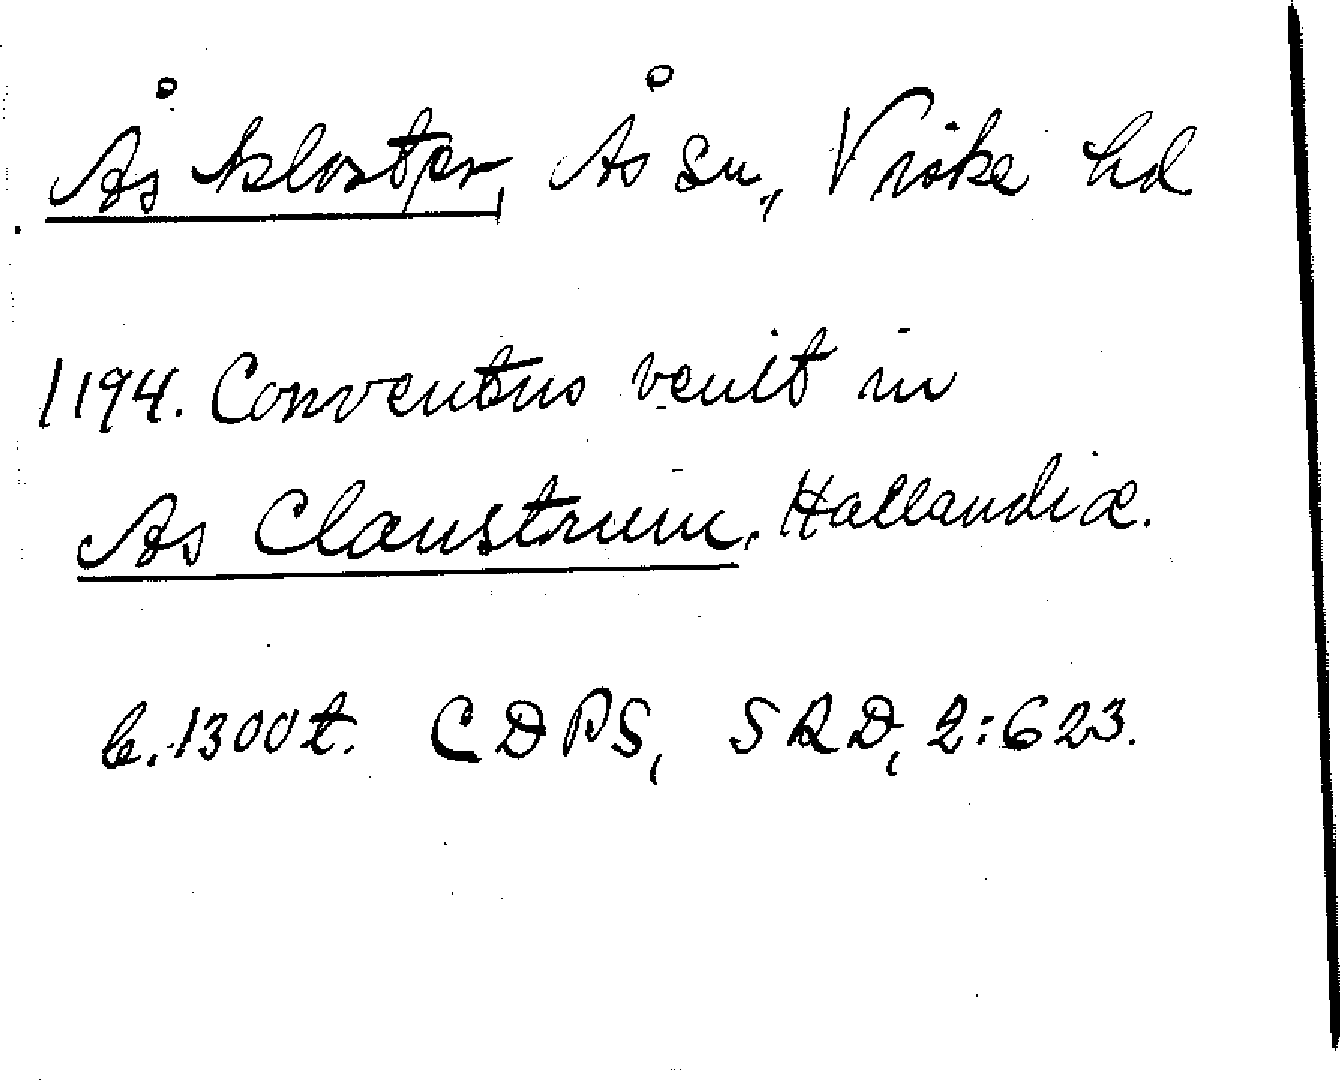 Ås kloster, Ås sn, Viske hd
1194. Conventus venit in
As Claustrum, Hallandiæ.
b. 1300t. CDPS, SRD, 2:623.